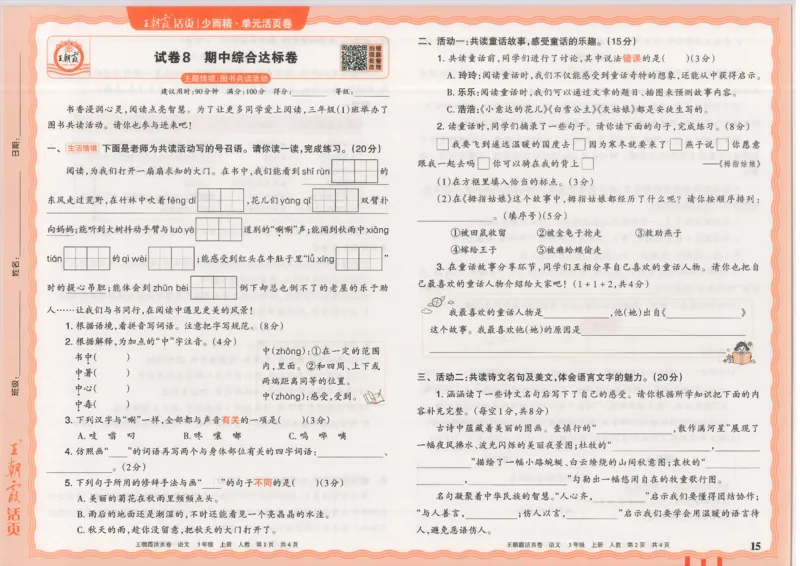 王朝霞活页 | 少而精·单元活页卷
王朝霞
试卷8 期中综合达标卷
主题情境:图书共读活动
建议用时:90分钟 满分:100分 得分: 等级:
书香浸润心灵,阅读点亮智慧。为了让更多同学爱上阅读,三年级(1)班举办了
图书共读活动。请你也参与进来吧!
一、生活情境 下面是老师为共读活动写的号召语。请你读一读,完成练习。(20分)
阅读,为我们打开一扇扇求知的大门。在书中,我们能看到shī rùn 的
东风走过荒野,在竹林中吹着fēng dí ,花儿们yǎng qǐ 双臂扑
向妈妈;能听到大树抖动手臂与luò yè 道别的“唰唰”声;能闻到秋雨中xiāng
tián 的qì wèi ;能感受到红头在牛肚子里“lǚ xíng ”
时的提心吊胆;能体会到zhǔn bèi 倒下却总也倒不了的老屋的乐于助
人……让我们与书同行,在阅读中遇见更美的风景!
1. 根据语境,看拼音写词语。注意把字写规范。(8分)
2. 根据解释,为加点的“中”字注音。(4分)
书中( )
中暑( )
中心( )
中毒( )
中(zhōng):①在一定的范围
内,里面。②和四周、上下或
两端距离同等的位置。
中(zhòng):感受,受到。
3. 下列汉字与“唰”一样,全部都与声音有关的一项是( )(3分)
A. 吱 嗡 叼 B. 咚 嚷 嘟 C. 呜 哗 嘀
4. 仿照画“ ”的词语再写两个与身体部位有关的四字词语: 、
。(2分)
5. 下列句子所用的修辞手法与画“ ”的句子不同的是( )(3分)
A. 美丽的菊花在秋雨里频频点头。
B. 雨后的地面还是潮湿的,不时还能看见一个亮晶晶的水洼。
C. 秋天的雨,趁你没留意,把秋天的大门打开了。
王朝霞活页卷 语文 3年级 上册 人教 第1页 共4页
二、活动一:共读童话故事,感受童话的乐趣。(15分)
1. 共读童话前,同学们进行了讨论,其中说法错误的是( )(3分)
A. 玲玲:阅读童话时,我们不仅能感受到童话奇特的想象,还能从中获得启示。
B. 乐乐:阅读童话时,我们可以通过文章的题目、插图来预测故事内容。
C. 浩浩:《小意达的花儿》《白雪公主》《灰姑娘》都是安徒生写的。
2. 读童话时,同学们摘录了一些句子。请你读下面的句子,完成练习。(8分)
□我要飞到遥远温暖的国度去□因为寒冬就要来了□燕子说□你愿意
跟我一起去吗□你可以骑在我的背上□ ——《拇指姑娘》
(1)在方框里填入恰当的标点。(3分)
(2)在《拇指姑娘》这个故事中,拇指姑娘都经历了什么呢?请你按顺序排列:
。(填序号)(5分)
①被田鼠收留 ②被金龟子抢走 ③救助燕子
④嫁给王子 ⑤被癞蛤蟆偷走
3. 在童话故事分享环节,同学们互相分享自己喜欢的童话人物。请你也把自
己最喜欢的童话人物介绍给大家吧!(1+1+2,共4分)
我最喜欢的童话人物是 ,他(她)出自《 》
这个故事。我最喜欢他(她)的原因是
三、活动二:共读诗文名句及美文,体会语言文字的魅力。(20分)
1. 涵涵读了一些诗文名句后写下了自己的感受。请你根据所学知识把下面的内
容补充完整。(每空1分,共8分)
古诗中蕴藏着美丽的图画。查慎行的“ ,散作满河星”展现了
一幅夜风拂水,波光闪烁的美丽夜景图;杜牧的“ ,
”描绘了一幅小路蜿蜒,白云缭绕的山间秋意图;袁枚的“
, ”勾勒出一幅悠闲自在的牧童歌行图。
名句凝聚着中华民族的智慧。“人心齐, ”启示我们要懂得团结协作;
“与人善言, ;伤人以言, ”启示我们要学会用温暖的语言待
人,避免恶语伤人。
王朝霞活页卷 语文 3年级 上册 人教 第2页 共4页
15
日期:
姓名:
班级:
王朝霞活页